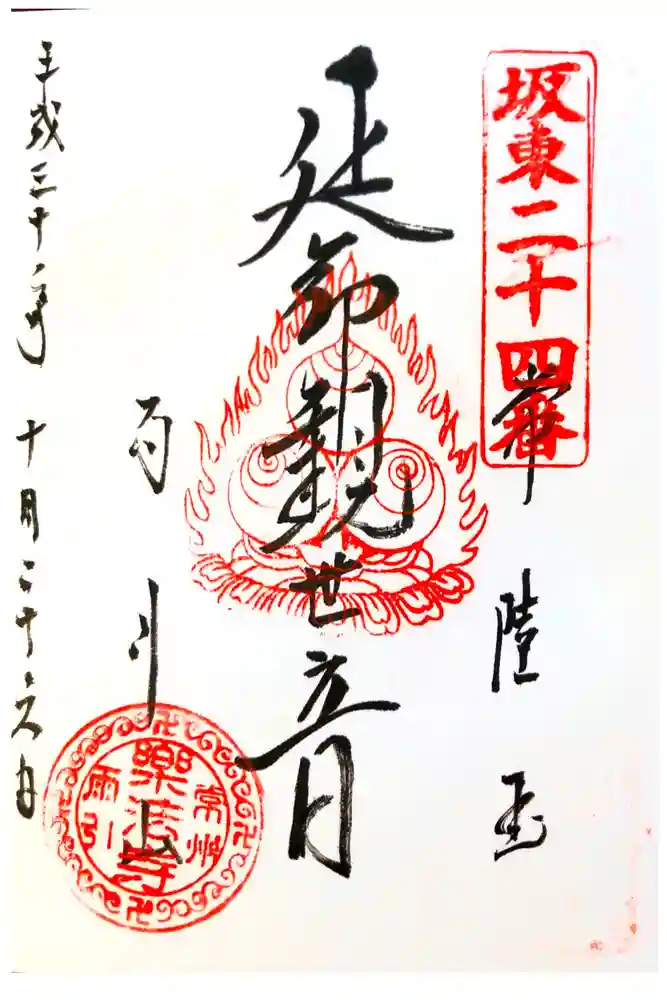 坂東二十四番
常陸國
延命観世音
雨引山
樂法寺
常州
雨引
平成三十年 十月二十六日